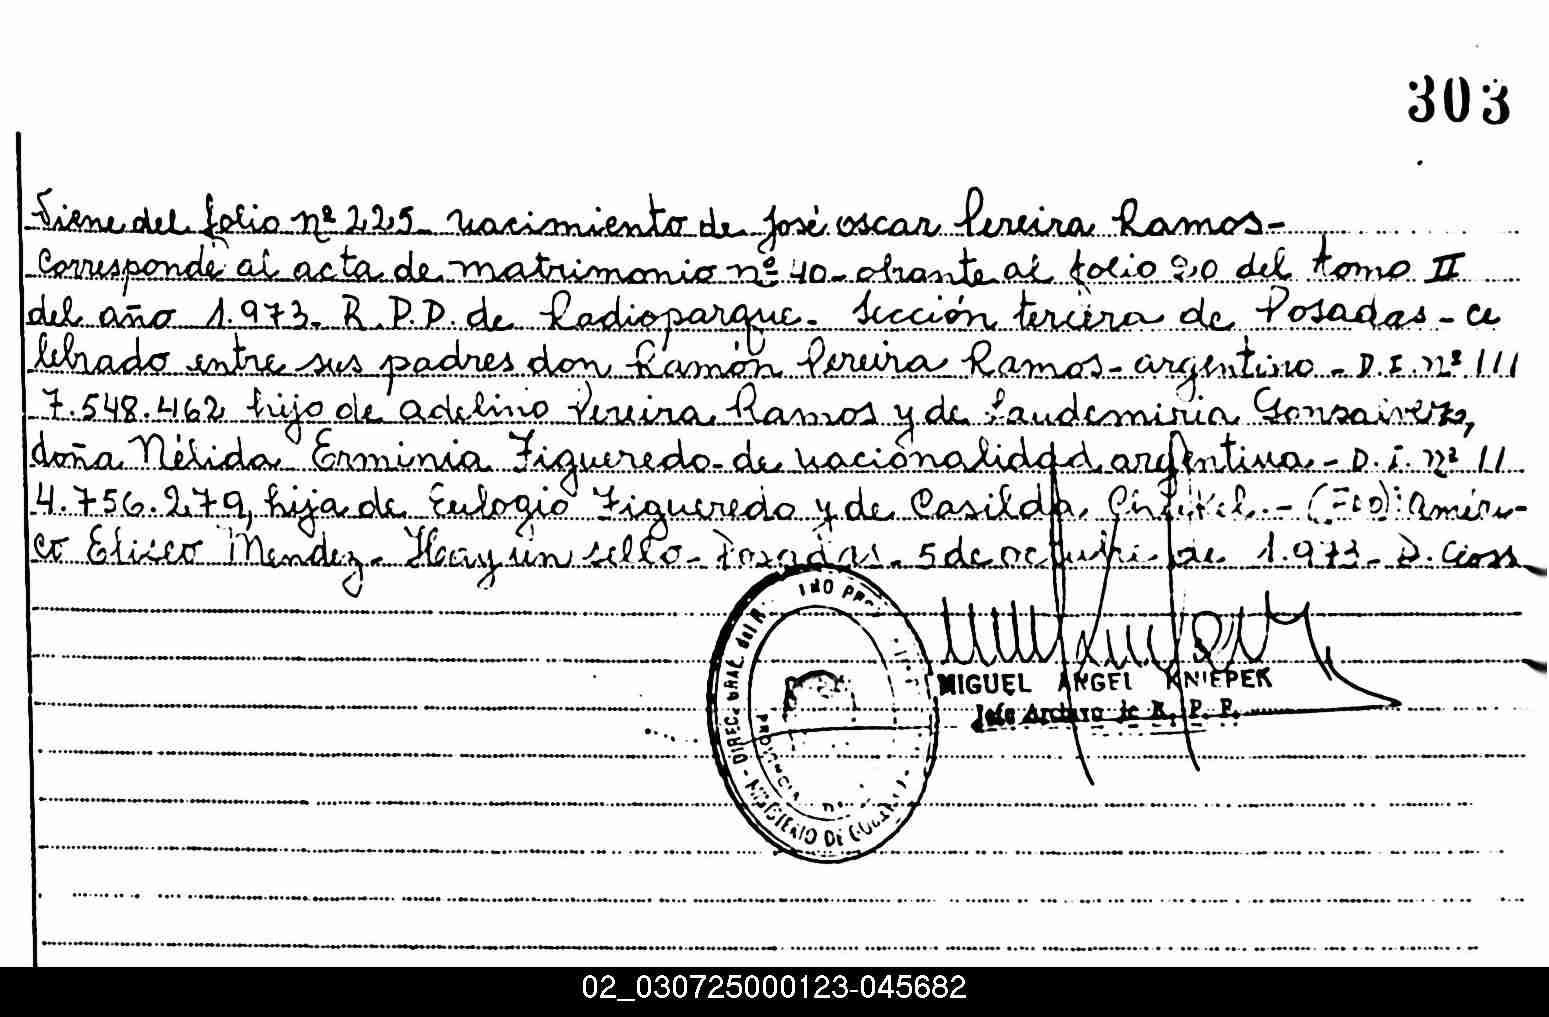 303
Viene del folio nº 225- nacimiento de José oscar Pereira Ramos-
Corresponde al acta de matrimonio nº 40- obrante al folio 20 del tomo II
del año 1.973- R.P.D. de Radioparque- Sección tercera de Posadas- ce
lebrado entre sus padres don Ramón Pereira Ramos- argentino- D.I. nº ///
7.548.462 hijo de Adelino Pereira Ramos y de Laudemiria Gonsalvez,
doña Nélida Erminia Figueredo- de nacionalidad argentina- D.I. nº //
4.756.279, hija de Eulogio Figueredo y de Casilda - (Fdo) Améri-
co Eliseo Mendez- Hay un sello- Posadas- 5 de octubre de 1.973- D.
DIREC. GRAL. del R.
MINISTERIO DE
PROVINCIA
MIGUEL ANGEL KNIEPEK
Jefe Archivo de R. P. P.
02_030725000123-045682